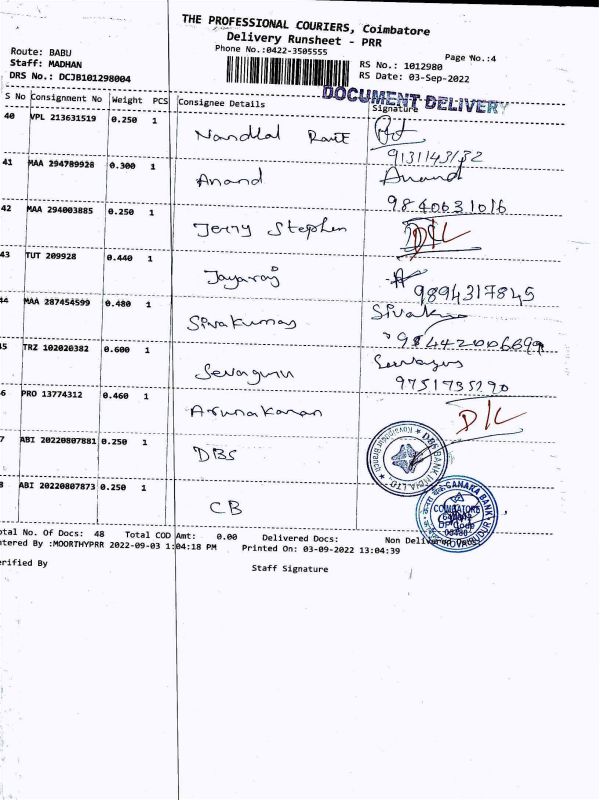 THE PROFESSIONAL COURIERS, Coimbatore
Delivery Runsheet - PRR
Phone No.:0422-3505555
Page No.:4
Route: BABU
Staff: MADHAN
DRS No.: DCJB101298004
RS No.: 1012980
RS Date: 03-Sep-2022
DOCUMENT DELIVERY
S No Consignment No Weight PCS Consignee Details Signature
40 VPL 213631519 0.250 1
Nandlal
9131143132
41 MAA 294789928 0.300 1
Anand Anand
9840631016
42 MAA 294003885 0.250 1
Jerry Stephen D/L
43 TUT 209928 0.440 1
Jayaraj
9894317845
44 MAA 287454599 0.480 1
Sivakumar
45 TRZ 102020382 0.600 1
Sevaguru
9751735290
6 PRO 13774312 0.460 1
Arunakaran D/L
7 ABI 20220807881 0.250 1
DBS
DBS BANK INDIA LTD.
8 ABI 20220807873 0.250 1
CB
CANARA BANK
COIMBATORE
DP Code
otal No. Of Docs: 48 Total COD Amt: 0.00 Delivered Docs: Non Delivered Docs:
ntered By :MOORTHYPRR 2022-09-03 1:04:18 PM Printed On: 03-09-2022 13:04:39
erified By
Staff Signature